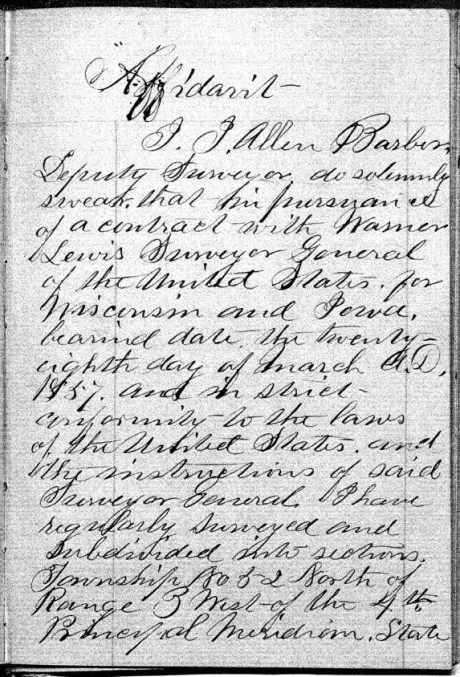 "Affidavit—
I, J. Allen Barber,
Deputy Surveyor, do solemnly
swear, that in pursuance
of a contract with Warner
Lewis Surveyor General
of the United States. for
Wisconsin and Iowa,
bearind date, the twenty-
eighth day of march A.D,
1857. and in strict-
conformity to the laws
of the United States. and
the instructions of said
Surveyor General. I have
regularly surveyed and
subdivided into sections.
Township No 52 North of
Range 3 West of the 4th
Principal Meridian. State